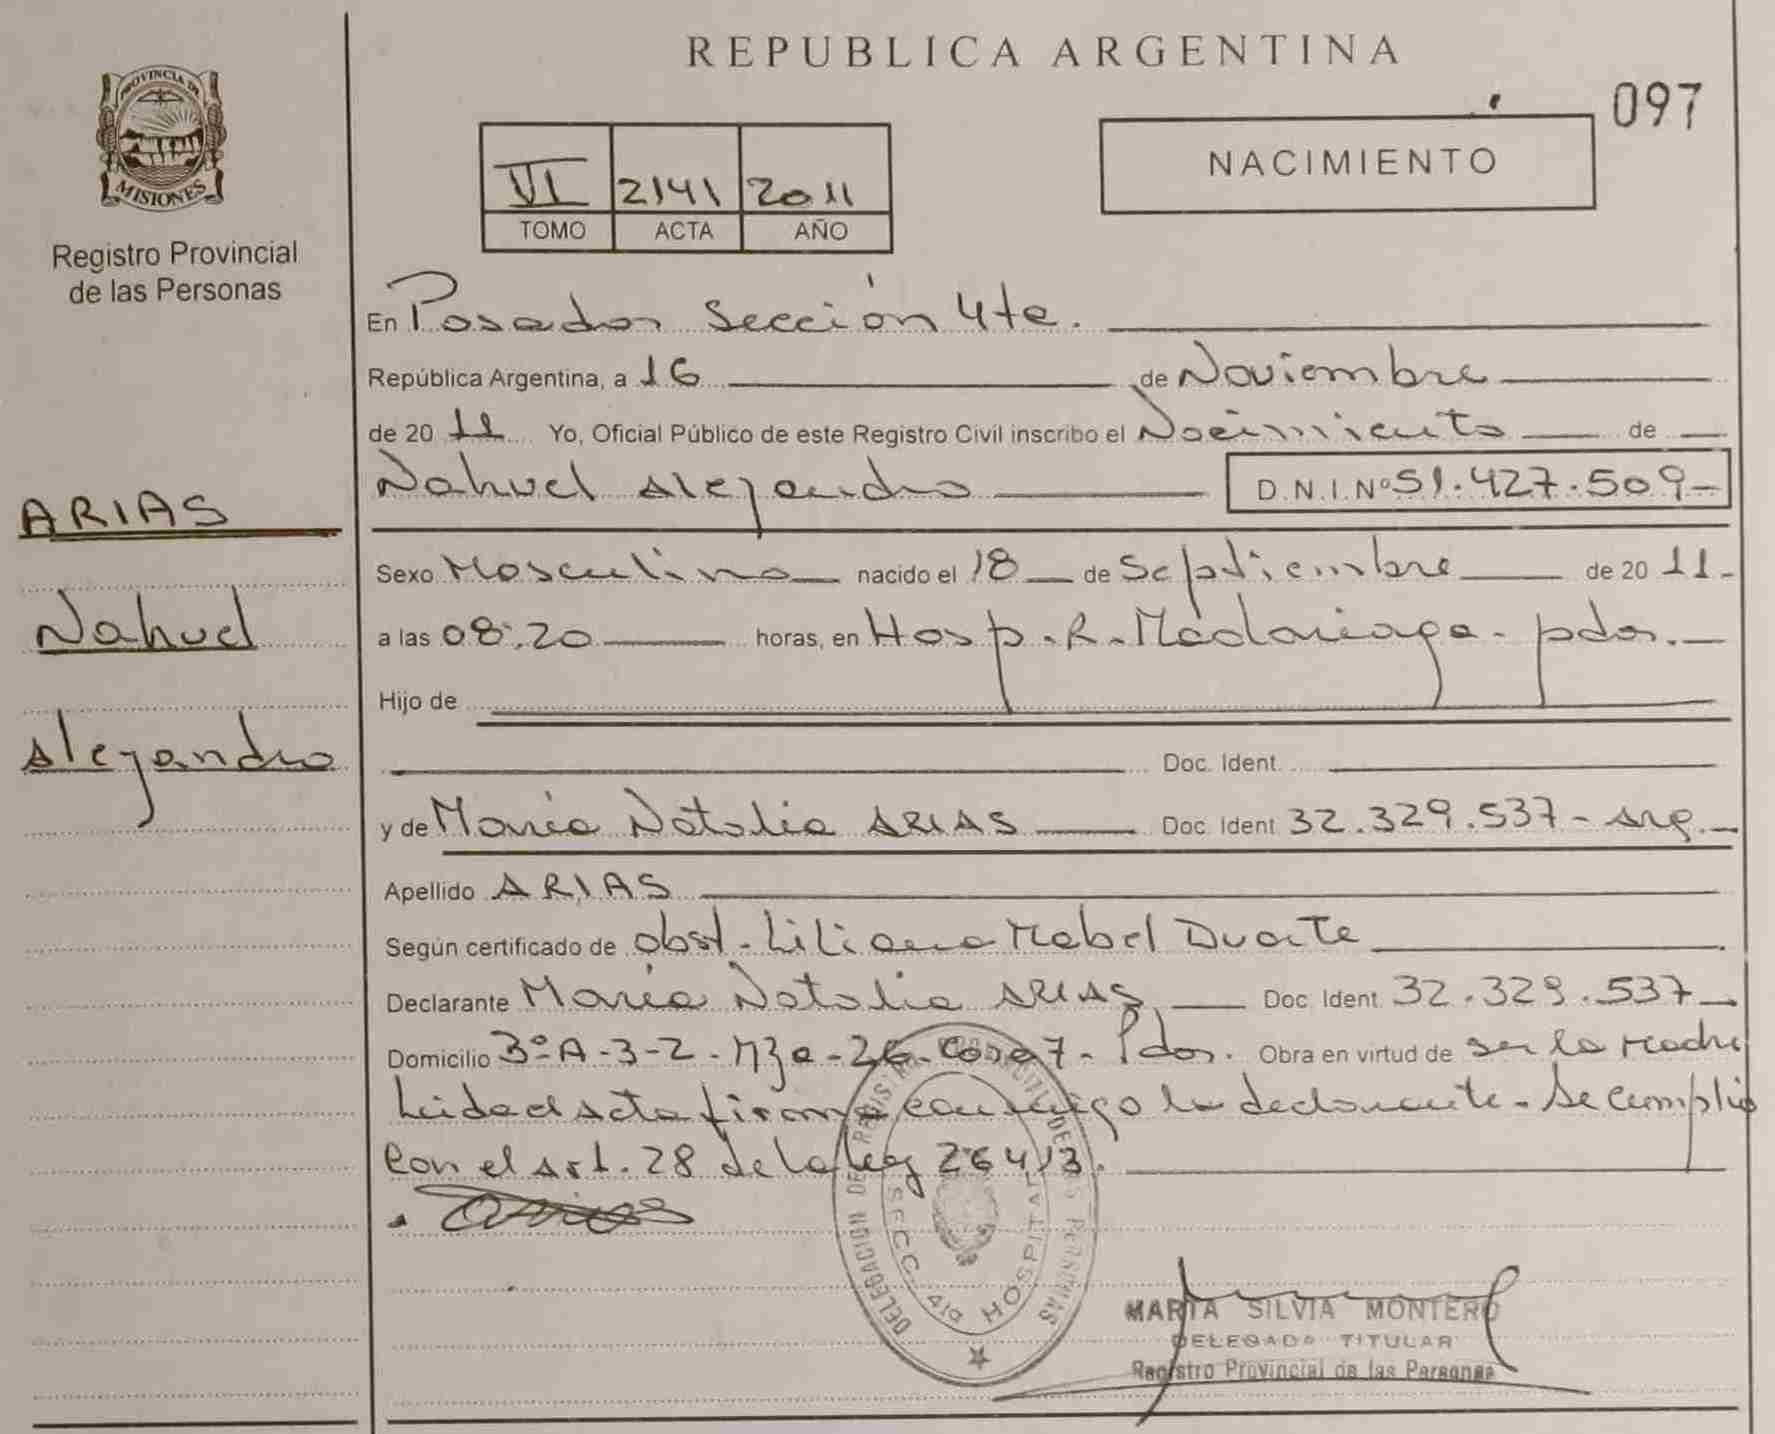 REPUBLICA ARGENTINA
097
PROVINCIA DE
MISIONES
Registro Provincial
de las Personas
VI 2141 2011
TOMO ACTA AÑO
NACIMIENTO
En Posadas Sección 4ta.
República Argentina, a 16 de Noviembre
de 2011 Yo, Oficial Público de este Registro Civil inscribo el Nacimiento de
Nahuel Alejandro D.N.I. Nº 51.427.509-
ARIAS
Nahuel
Alejandro
Sexo Masculino nacido el 18 de Septiembre de 2011-
a las 08:20 horas, en Hosp. R. Madariaga - pdas.-
Hijo de
Doc. Ident.
y de María Natalia ARIAS Doc. Ident 32.329.537- Arg.-
Apellido ARIAS
Según certificado de obst. Liliana Mabel Duarte
Declarante María Natalia ARIAS Doc. Ident 32.329.537-
Domicilio 3º A-3-2-Mza-26-Casa 7- Pdas. Obra en virtud de ser la madre
Leida el Acta firma conmigo la declarante - Se cumplió
con el Art. 28 de la ley 26413.
Arias
DELEGACION DE PERSONAS
SECC. 4ta HOSPITAL
MARTA SILVIA MONTERO
DELEGADA TITULAR
Registro Provincial de las Personas